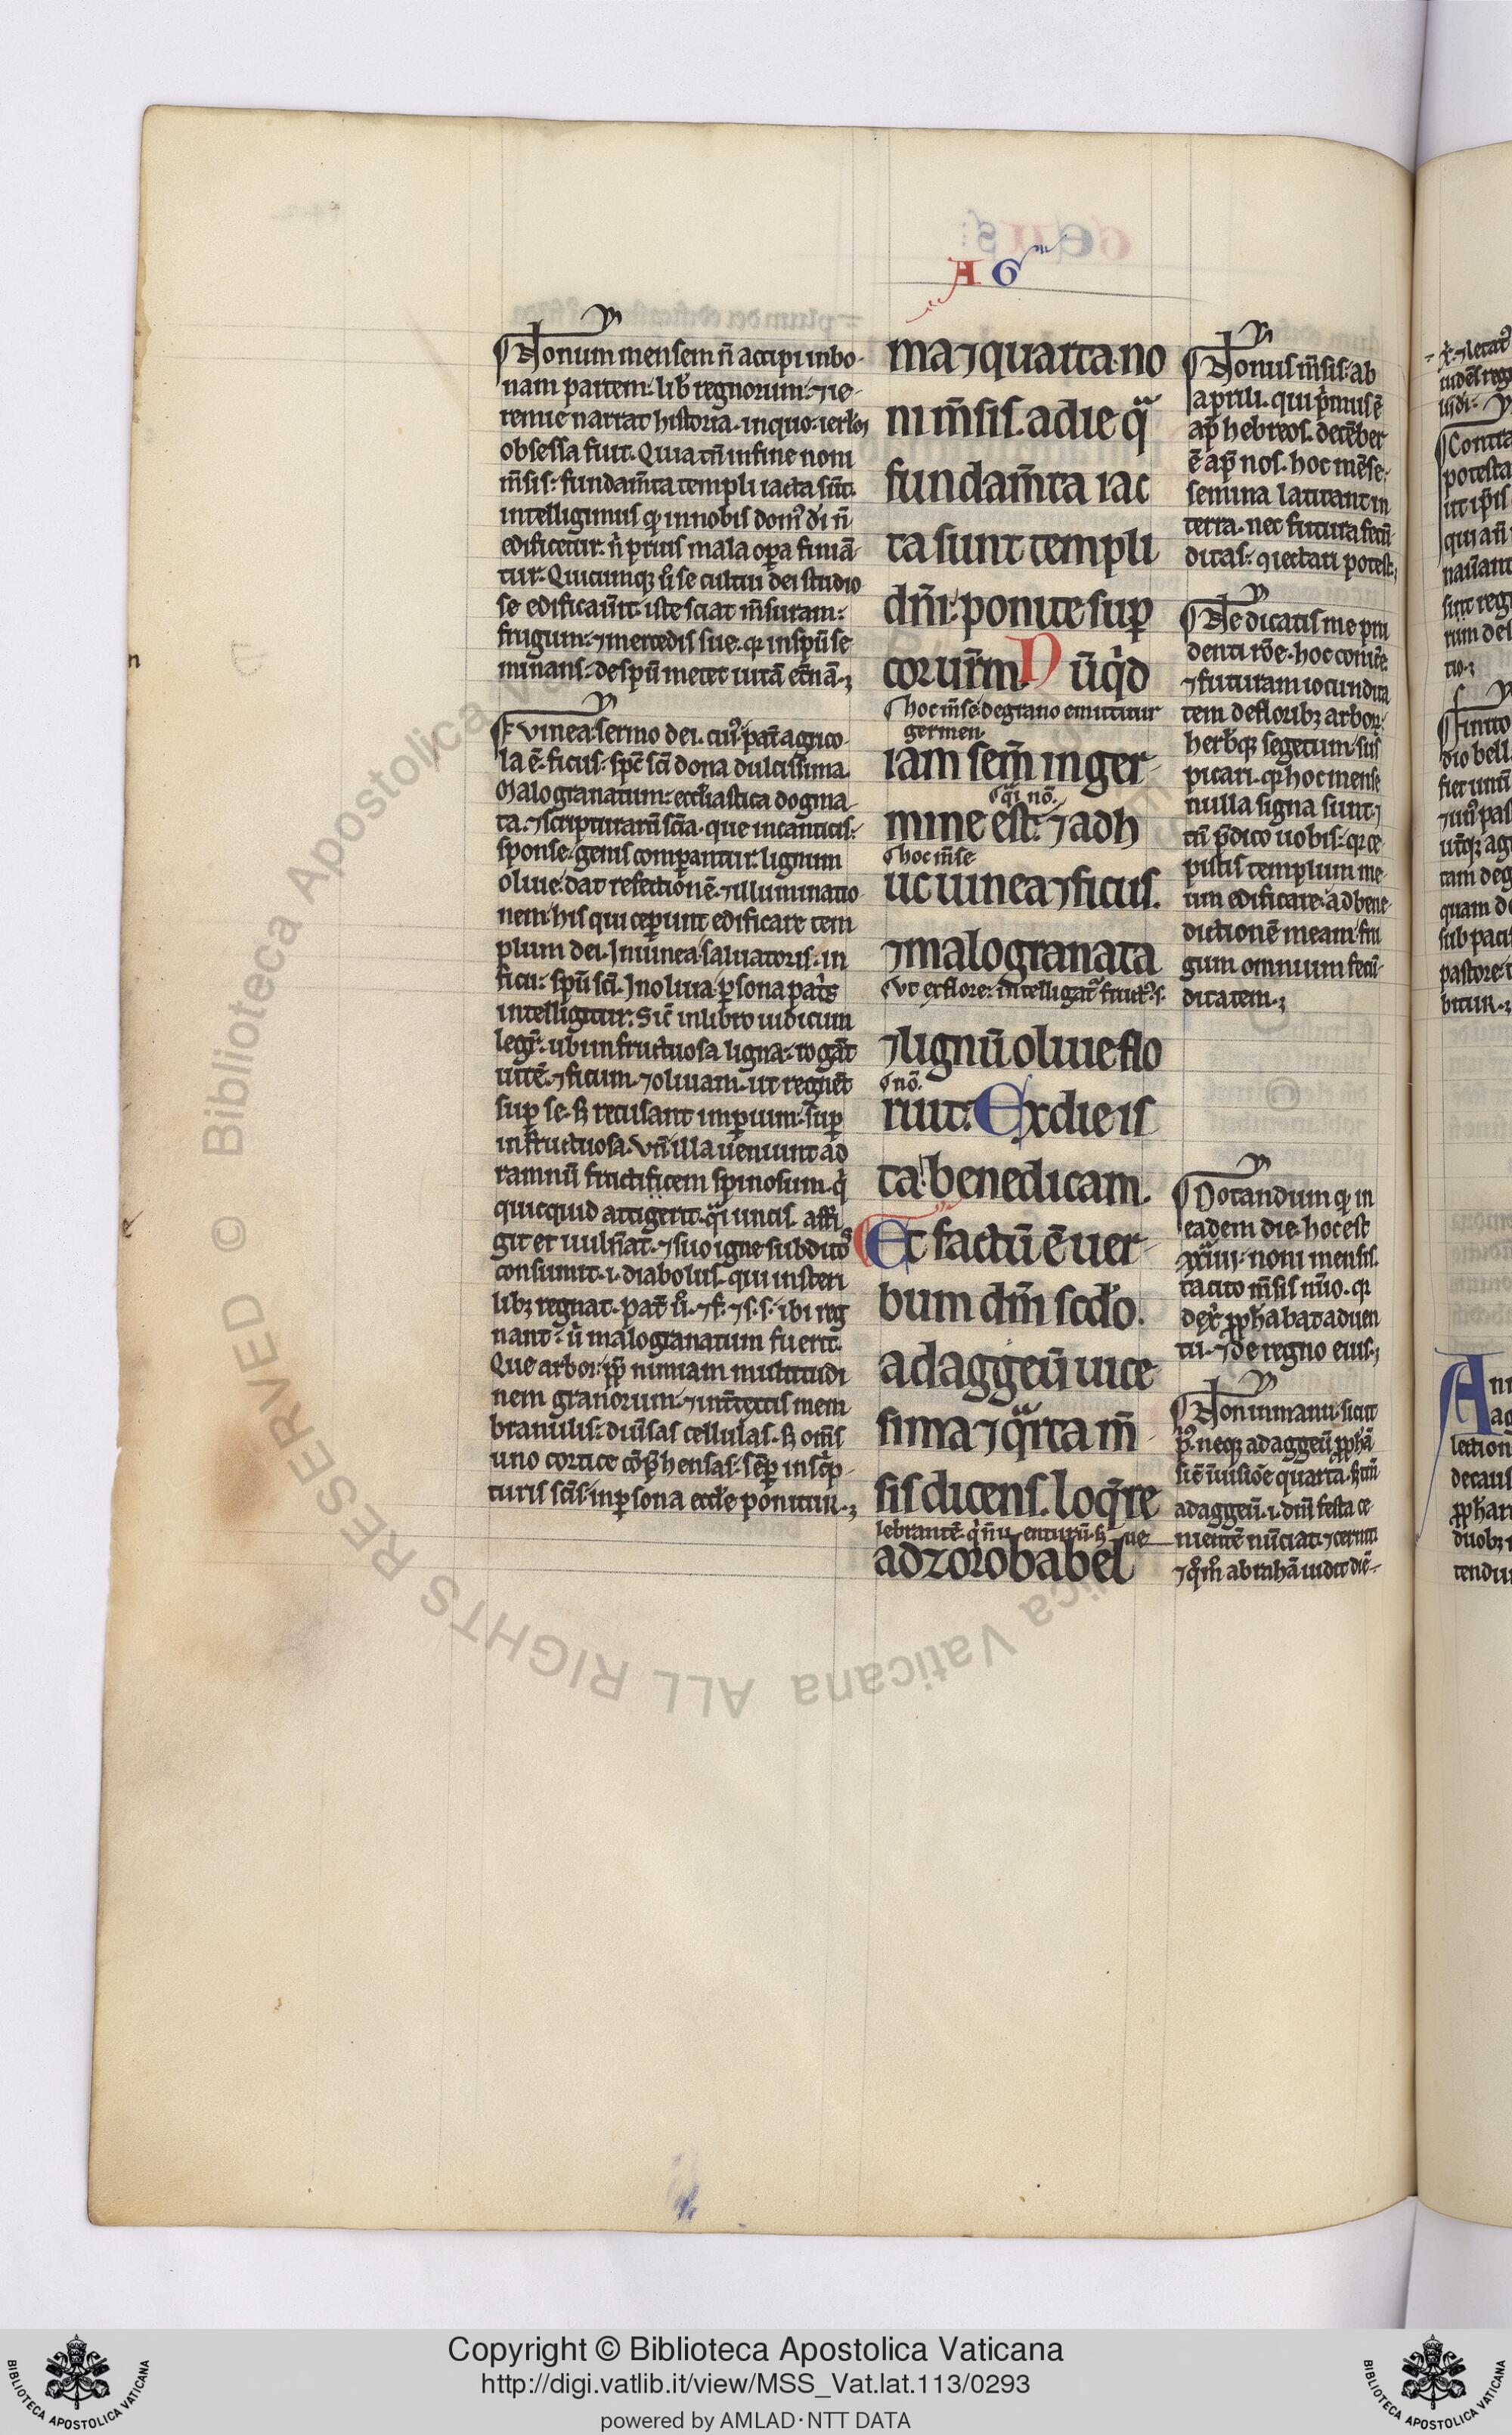 A G
Nonum mensem n̄ accipi in bo-
nam partem. lib̄ regnorum. ⁊ ie-
remie narrat historia. in quo ierl̄m
obsessa fuit. Quia tn̄ in fine noni
m̄sis. fundam̄ta templi iacta sūt.
intelligimus qđ in nobis dom᷒ dī n̄
edificetur. n̄ prius mala opa finiā-
tur. Quicumqȝ ū se cultui dei studio
se edificaūit. iste sciat m̄suram.
frugum. ⁊ mercedis sue. qr in spū se
minans. de spū metet uitā et̄nā.
Vinea sermo dei. cui᷒ pat̄ agrico-
la ē. ficus. spc̄ sc̄i dona dulcissima.
Malogranatum. eccl̄iastica dogma-
ta. ⁊ scripturarū scīa. que in canticis.
sponse. genis comparantur. lignum
oliue. dat refectionē. ⁊ illuminatio
nem. his qui ceperunt edificare tem
plum dei. In uinea. saluatoris. in
ficu. spū sc̄i. In oliua. psona patris
intelligitur. Sic̄ in libro iudicum
legit̄. ubi infructuosa ligna. rogāt
uitē. ⁊ ficum. ⁊ oliuam. ut regnēt
sup se. s̄ recusant imperium. sup
infructuosa. Vn̄ illa ueniunt ad
ramnū fructificem spinosum. q̄
quicquid attigerit. q̄i uncis. affi
git et uuln̄at. ⁊ suo igne subdito᷒
consumit. i. diabolus. qui in steri
libȝ regnat. pat̄ ū. ⁊ f. ⁊ s. s. ibi reg
nant. ū malogranatum fuerit.
Que arbor. pp̄ nimiam multitudi
nem granorum. ⁊ int̄tectis mem
branulis. diūsas cellulas. s̄ om̄s
uno cortice cōp̄hensas. sēp in scp̄-
turis sc̄is. in psona eccl̄e ponitur.
ma ⁊ quarta no
ni m̄sis. a die q̄
fundam̄ta iac
ta sunt templi
dn̄i. ponite sup
cor ur̄m. Nūq̄d
hoc m̄se de grano emittitur
germen.
iam sem̄ in ger-
q̄i nō.
mine est. ⁊ adh
hoc m̄se
uc uinea ⁊ ficus.
⁊ malogranata
Vt ex flore. intelligat᷒ fruct᷒. s.
⁊ lignū oliue flo
nō.
ruit. Ex die is
ta benedicam.
Et factū ē uer-
bum dn̄i scd̄o.
ad aggeū uice
sima ⁊ q̄rta m̄
sis dicens. loq̄re
ad zorobabel
Nonus m̄sis. ab
aprili. qui p̄mus ē
ap̄ hebreos. decēber
ē ap̄ nos. hoc mēse.
semina latitant in
terra. nec futura fecū
ditas. ꝯiectari potest.
Ne dicatis me pru
denti rōe. hoc conice.
⁊ futuram iocundita
tem de floribȝ arborȝ.
herbqȝ segetum. sus
picari. qr hoc mense
nulla signa sunt. ⁊
tn̄ p̄dico uobis. qr ce-
pistis templum me-
um edificare. ad bene-
dictionē meam. fru
gum omnium fecū-
ditatem.
Notandum qđ in
eadem die. hoc est
xxiiii. noni mensis.
tacito m̄sis nūo. qr
de xp̄o pphabat aduen
tu. ⁊ de regno eius.
Non in manu. sicut
p᷒. neqȝ ad aggeū pphā
sic̄ in uisiōe quarta. s̄ tm̄
ad aggeū. i. dn̄i festa ce-
lebrantē. q̄ n̄ uenturū. s̄ ue-
nientē nūciat. ⁊ cernit.
⁊ q̄m abrahā uidit diē.
Copyright © Biblioteca Apostolica Vaticana
http://digi.vatlib.it/view/MSS_Vat.lat.113/0293
powered by AMLAD·NTT DATA
BIBLIOTECA APOSTOLICA VATICANA
BIBLIOTECA APOSTOLICA VATICANA